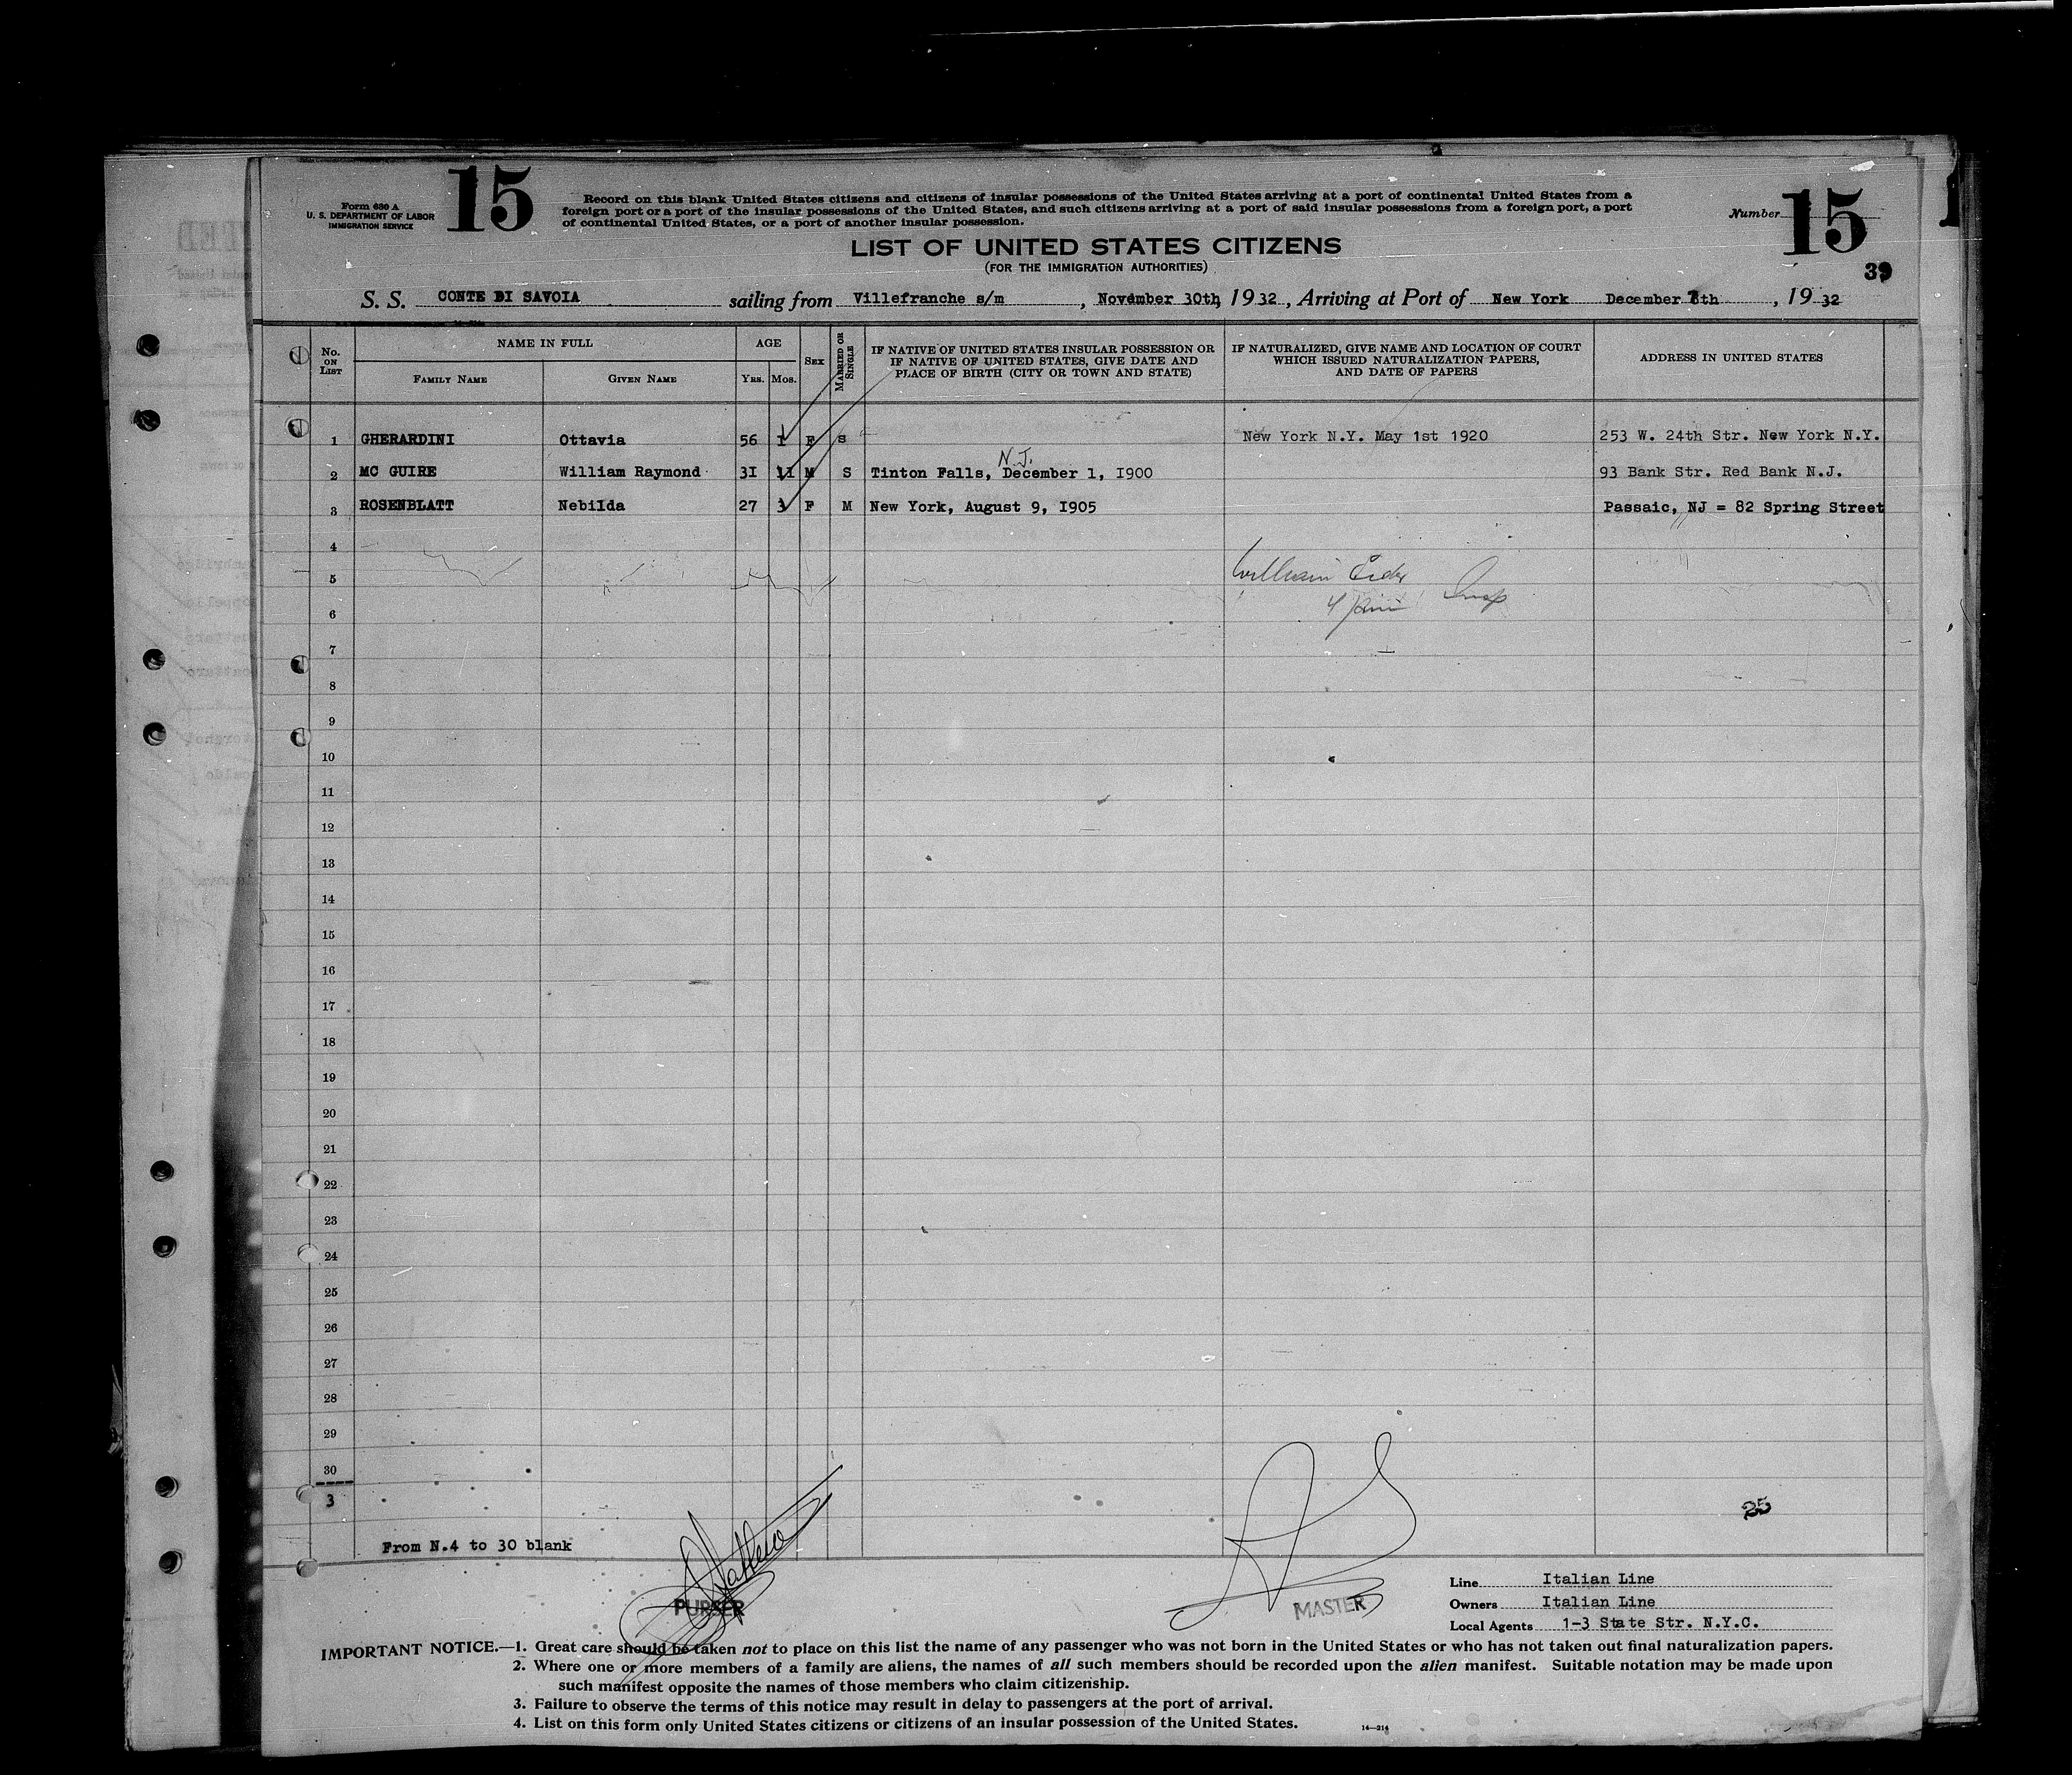 Form 630 A
U. S. DEPARTMENT OF LABOR
IMMIGRATION SERVICE
15
Record on this blank United States citizens and citizens of insular possessions of the United States arriving at a port of continental United States from a
foreign port or a port of the insular possessions of the United States, and such citizens arriving at a port of said insular possessions from a foreign port, a port
of continental United States, or a port of another insular possession.
Number 15
LIST OF UNITED STATES CITIZENS
(FOR THE IMMIGRATION AUTHORITIES)
39
S. S. CONTE DI SAVOIA sailing from Villefranche s/m, November 30th, 1932, Arriving at Port of New York December th, 1932
No. ON LIST
NAME IN FULL
FAMILY NAME
GIVEN NAME
AGE
YRS. MOS.
SEX
MARRIED OR SINGLE
IF NATIVE OF UNITED STATES INSULAR POSSESSION OR
IF NATIVE OF UNITED STATES, GIVE DATE AND
PLACE OF BIRTH (CITY OR TOWN AND STATE)
IF NATURALIZED, GIVE NAME AND LOCATION OF COURT
WHICH ISSUED NATURALIZATION PAPERS,
AND DATE OF PAPERS
ADDRESS IN UNITED STATES
1 GHERARDINI Ottavia 56 1 F S New York N.Y. May 1st 1920 253 W. 24th Str. New York N.Y.
N.J.
2 MC GUIRE William Raymond 3I 11 M S Tinton Falls, December 1, I900 93 Bank Str. Red Bank N.J.
3 ROSENBLATT Nebilda 27 3 F M New York, August 9, I905 Passaic, NJ = 82 Spring Street
4
5 William Insp
6
7
8
9
10
11
12
13
14
15
16
17
18
19
20
21
22
23
24
25
26
27
28
29
30
3
25
From N.4 to 30 blank
PURSER
MASTER
Line Italian Line
Owners Italian Line
Local Agents 1-3 State Str. N.Y.C.
IMPORTANT NOTICE.—1. Great care should be taken not to place on this list the name of any passenger who was not born in the United States or who has not taken out final naturalization papers.
2. Where one or more members of a family are aliens, the names of all such members should be recorded upon the alien manifest. Suitable notation may be made upon
such manifest opposite the names of those members who claim citizenship.
3. Failure to observe the terms of this notice may result in delay to passengers at the port of arrival.
4. List on this form only United States citizens or citizens of an insular possession of the United States.
14—214